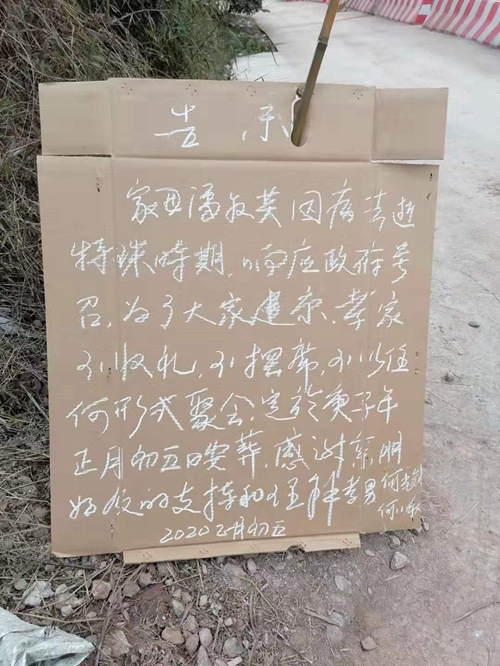 告示
家母潘放英因病去逝
特殊时期,响应政府号
召,为了大家健康,孝家
不收礼,不摆席,不以任
何形式聚会,定於庚子年
正月初五日安葬,感谢亲朋
好友的支持和理解孝男
何
何小
2020正月初五